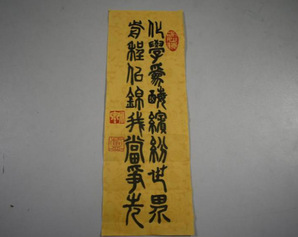 化學爲繽紛世界
前程佀錦我當爭先